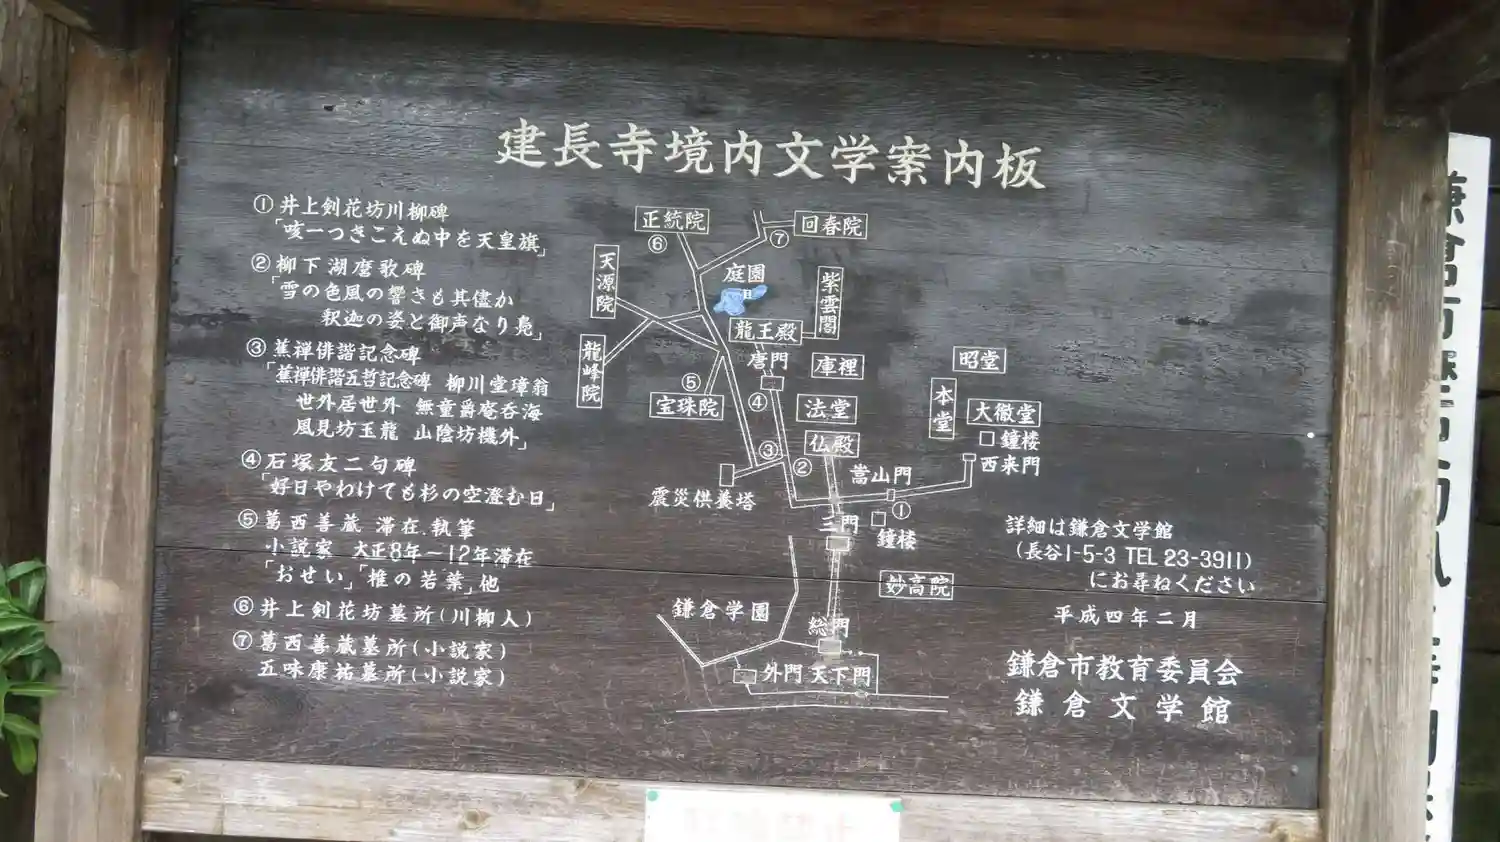 建長寺境内文学案内板
①井上剣花坊川柳碑
「咳一つきこえぬ中を天皇旗」
②柳下湖磨歌碑
「雪の色風の響きも其儘か
釈迦の姿と御声なり鳧」
③蕉禅俳諧記念碑
「蕉禅俳諧五哲記念碑 柳川堂璋翁
世外居世外 無童爵庵呑海
風見坊玉龍 山陰坊機外」
④石塚友二句碑
「好日やわけても杉の空澄む日」
⑤葛西善蔵 滞在.執筆
小説家 大正8年-12年滞在
「おせい」「椎の若葉」他
⑥井上剣花坊墓所(川柳人)
⑦葛西善蔵墓所(小説家)
五味康祐墓所(小説家)
正統院
⑥
回春院
⑦
天源院
庭園
紫雲閣
龍王殿
唐門
龍峰院
庫裡
昭堂
⑤
宝珠院
④
法堂
本堂
大徹堂
鐘楼
仏殿
西来門
③
②
嵩山門
震災供養塔
①
三門
鐘楼
妙高院
鎌倉学園
総門
外門
天下門
詳細は鎌倉文学館
(長谷1-5-3 TEL 23-3911)
にお尋ねください
平成四年二月
鎌倉市教育委員会
鎌倉文学館